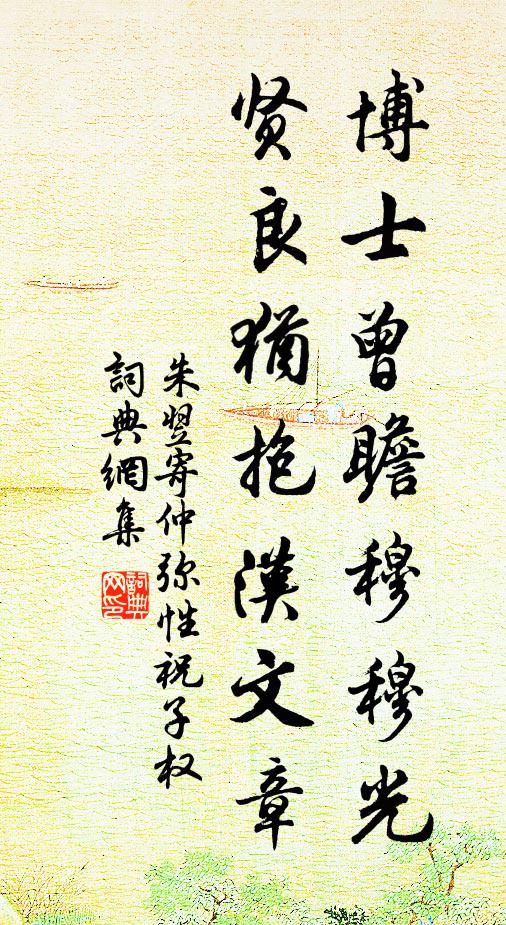 博士曾瞻穆穆光
贤良猶抱漢文章
朱翌寄仲弥性祝子权
詞典網集
詞典网印